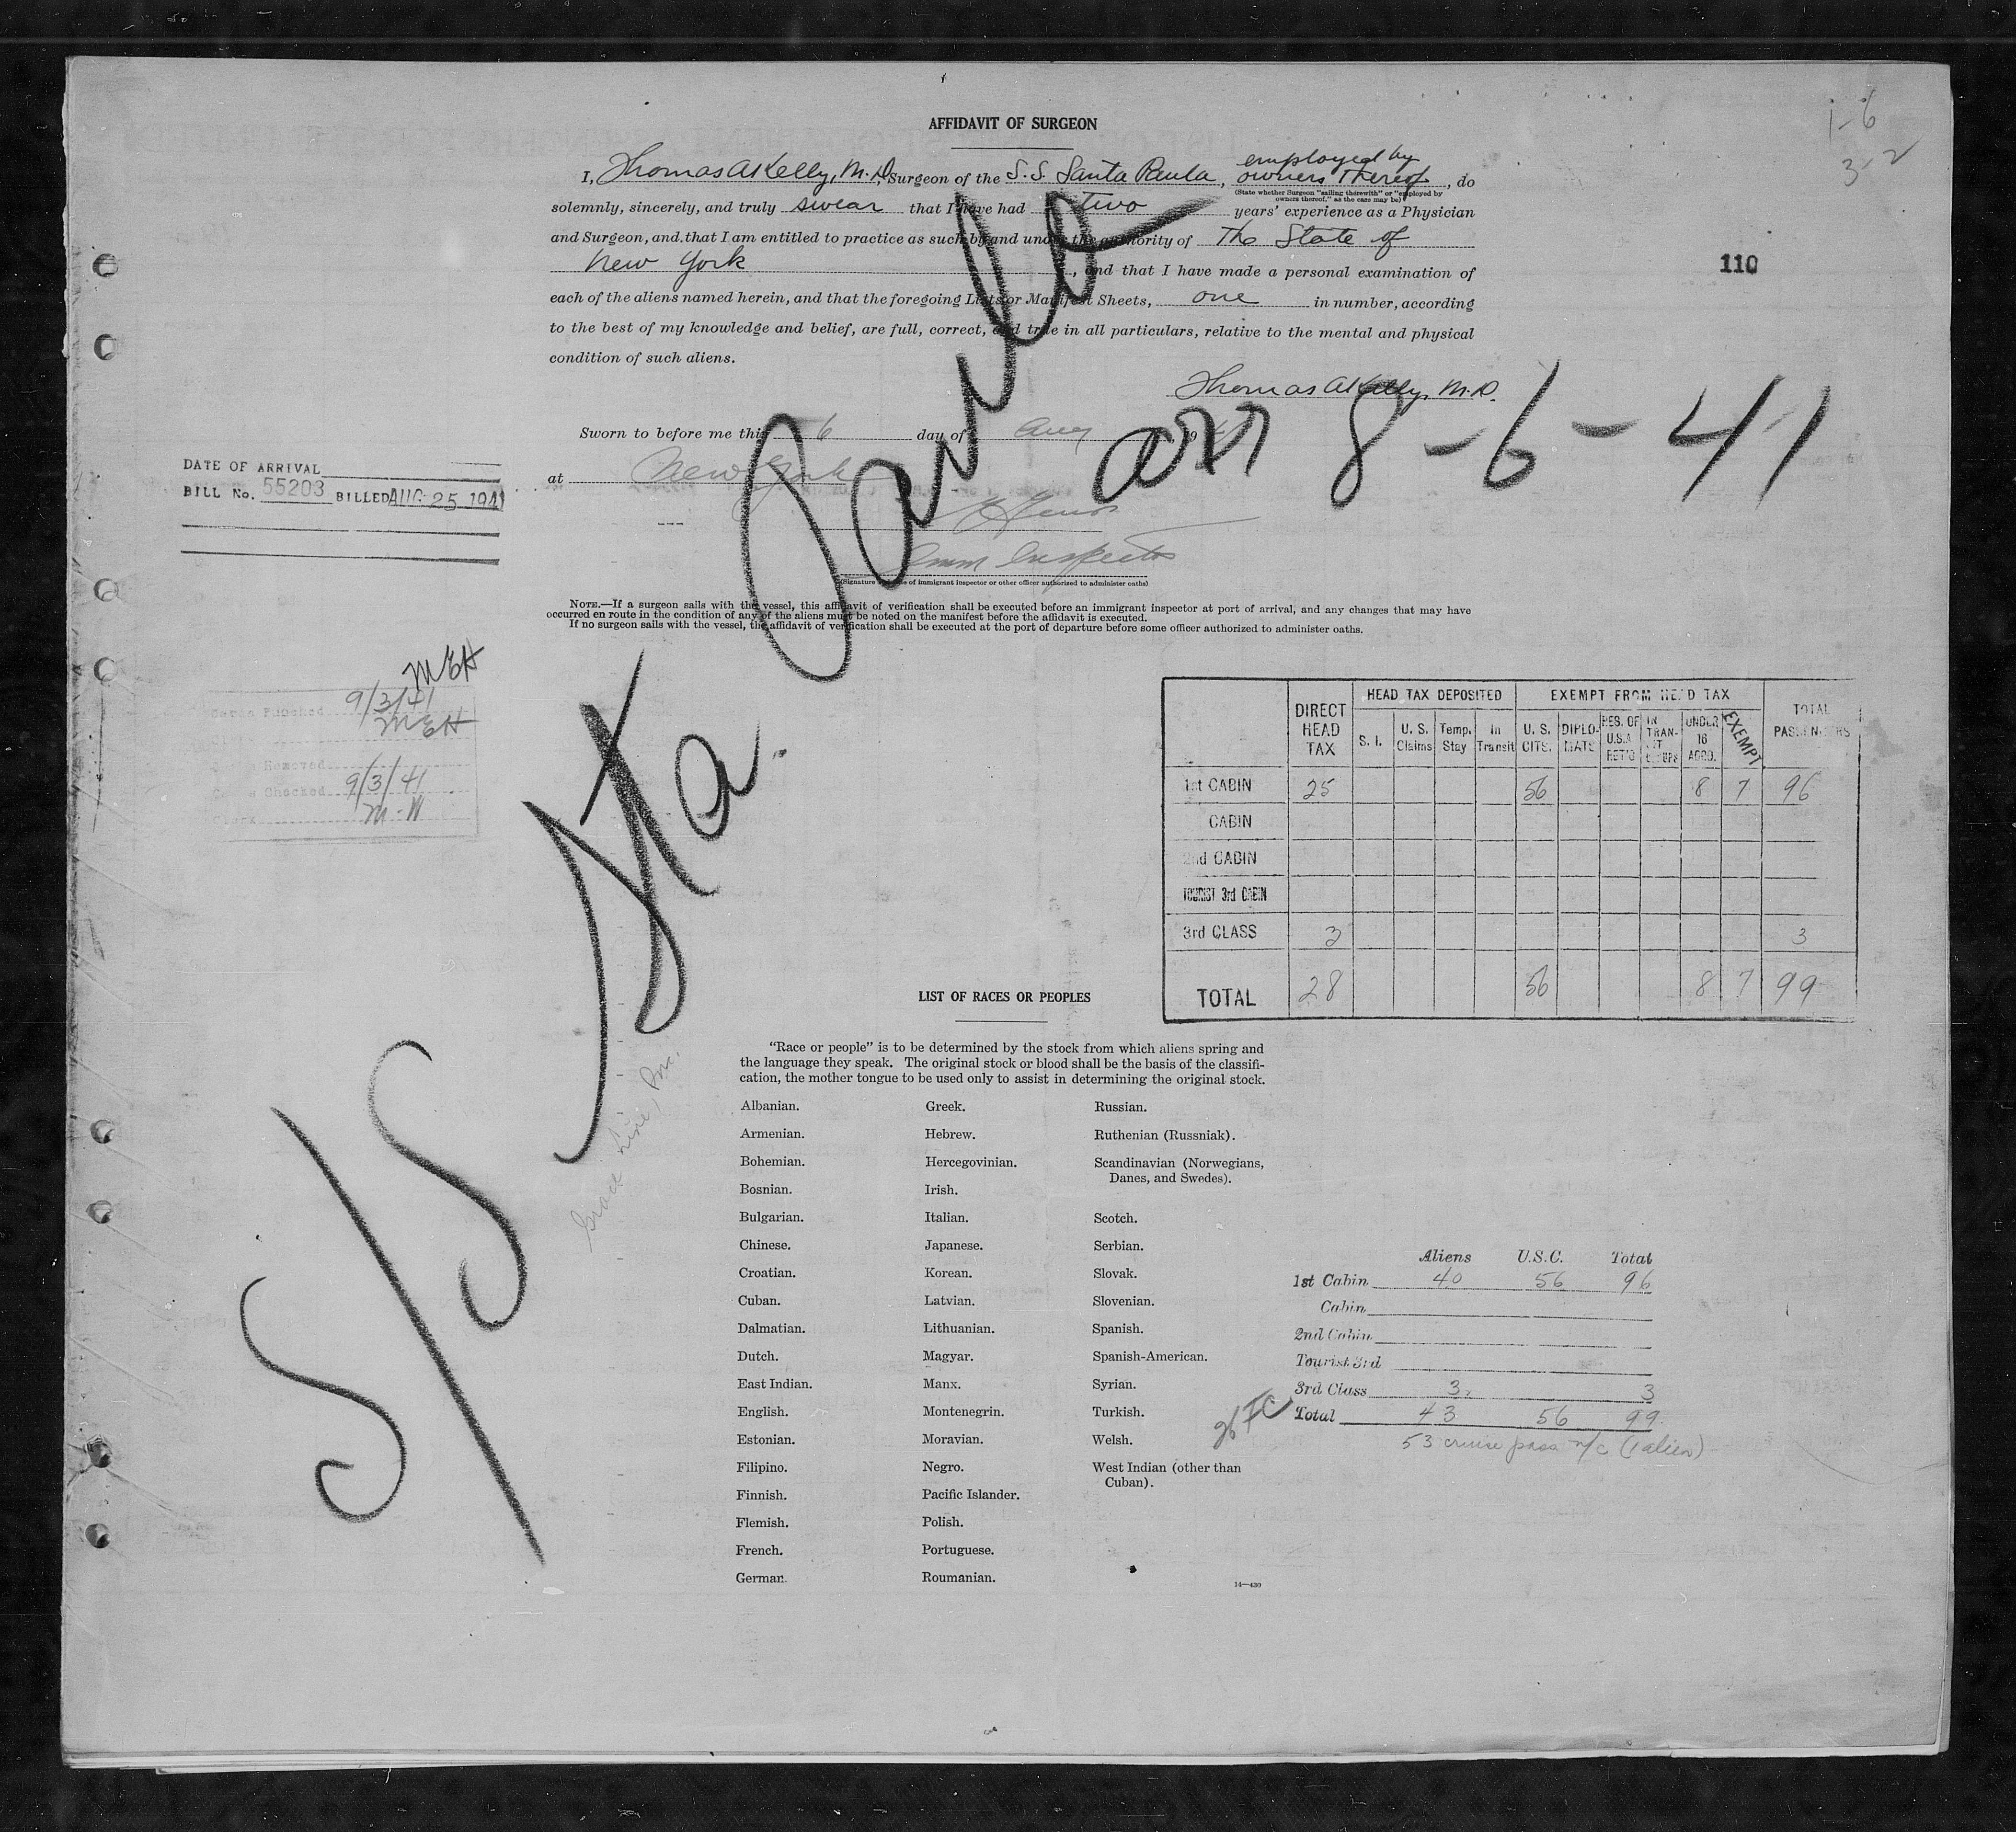 AFFIDAVIT OF SURGEON
1-6
3-2
I, Thomas A Kelly, M.D., Surgeon of the S.S. Santa Paula, employed by owners thereof, do
(State whether Surgeon "sailing therewith" or "employed by owners thereof," as the case may be)
solemnly, sincerely, and truly swear that I have had two years' experience as a Physician
and Surgeon, and that I am entitled to practice as such by and under the authority of The State of
New York, and that I have made a personal examination of
110
each of the aliens named herein, and that the foregoing Lists or Manifest Sheets, one in number, according
to the best of my knowledge and belief, are full, correct, and true in all particulars, relative to the mental and physical
condition of such aliens.
Thomas A Kelly, M.D.
Sworn to before me this 6 day of Aug 1941
at New York
Imm Inspector
(Signature and title of immigrant inspector or other officer authorized to administer oaths)
S/S Sta. Paula
arr 8-6-41
DATE OF ARRIVAL
BILL No. 55203 BILLED AUG 25 1941
NOTE.—If a surgeon sails with the vessel, this affidavit of verification shall be executed before an immigrant inspector at port of arrival, and any changes that may have
occurred en route in the condition of any of the aliens must be noted on the manifest before the affidavit is executed.
If no surgeon sails with the vessel, the affidavit of verification shall be executed at the port of departure before some officer authorized to administer oaths.
MEH
Cards Punched 9/3/41
Clerk MEH
Cards Removed
Cards Checked 9/3/41
Clerk M-W
DIRECT HEAD TAX
HEAD TAX DEPOSITED
EXEMPT FROM HEAD TAX
TOTAL PASSENGERS
S. I. U. S. Claims Temp. Stay In Transit U. S. CITS. DIPLO-MATS RES. OF U.S.A. RET'G IN TRAN-SIT UNDER 16 ACCO. EXEMPT
1st CABIN 25 56 8 7 96
CABIN
2nd CABIN
TOURIST 3rd CABIN
3rd CLASS 3 3
TOTAL 28 56 8 7 99
Grace Line, Inc.
LIST OF RACES OR PEOPLES
"Race or people" is to be determined by the stock from which aliens spring and
the language they speak. The original stock or blood shall be the basis of the classifi-
cation, the mother tongue to be used only to assist in determining the original stock.
Albanian.
Armenian.
Bohemian.
Bosnian.
Bulgarian.
Chinese.
Croatian.
Cuban.
Dalmatian.
Dutch.
East Indian.
English.
Estonian.
Filipino.
Finnish.
Flemish.
French.
German.
Greek.
Hebrew.
Hercegovinian.
Irish.
Italian.
Japanese.
Korean.
Latvian.
Lithuanian.
Magyar.
Manx.
Montenegrin.
Moravian.
Negro.
Pacific Islander.
Polish.
Portuguese.
Roumanian.
Russian.
Ruthenian (Russniak).
Scandinavian (Norwegians,
Danes, and Swedes).
Scotch.
Serbian.
Slovak.
Slovenian.
Spanish.
Spanish-American.
Syrian.
Turkish.
Welsh.
West Indian (other than
Cuban).
14—430
Aliens U.S.C. Total
1st Cabin 40 56 96
Cabin
2nd Cabin
Tourist 3rd
3rd Class 3 3
Total 43 56 99
53 cruise pass n/c (1 alien)